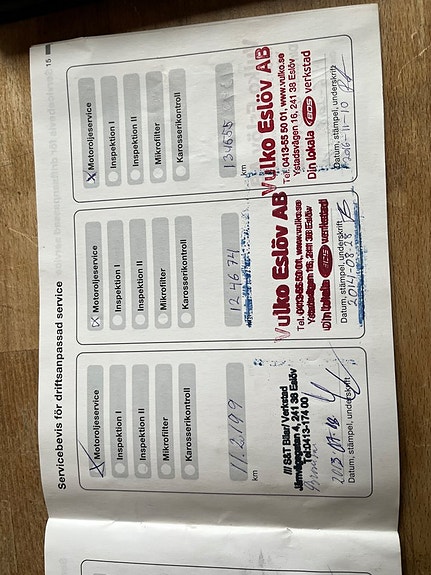 Servicebevis för driftsanpassad service
15
X Motoroljeservice
Inspektion I
Inspektion II
Mikrofilter
Karosserikontroll
112199
km
/// S&T Bilar/ Verkstad
Järnvägsgatan 4, 241 38 Eslöv
Tel:0413-174 00
Datum, stämpel, underskrift
X Motoroljeservice
Inspektion I
Inspektion II
Mikrofilter
Karosserikontroll
124674
km
Vulko Eslöv AB
Tel. 0413-55 50 01, www.vulko.se
Ystadsvägen 16, 241 38 Eslöv
Din lokala BDS verkstad
Datum, stämpel, underskrift
2014-08-28
X Motoroljeservice
Inspektion I
Inspektion II
Mikrofilter
Karosserikontroll
134655
km
Vulko Eslöv AB
Tel. 0413-55 50 01, www.vulko.se
Ystadsvägen 16, 241 38 Eslöv
Din lokala BDS verkstad
Datum, stämpel, underskrift
2016-11-10